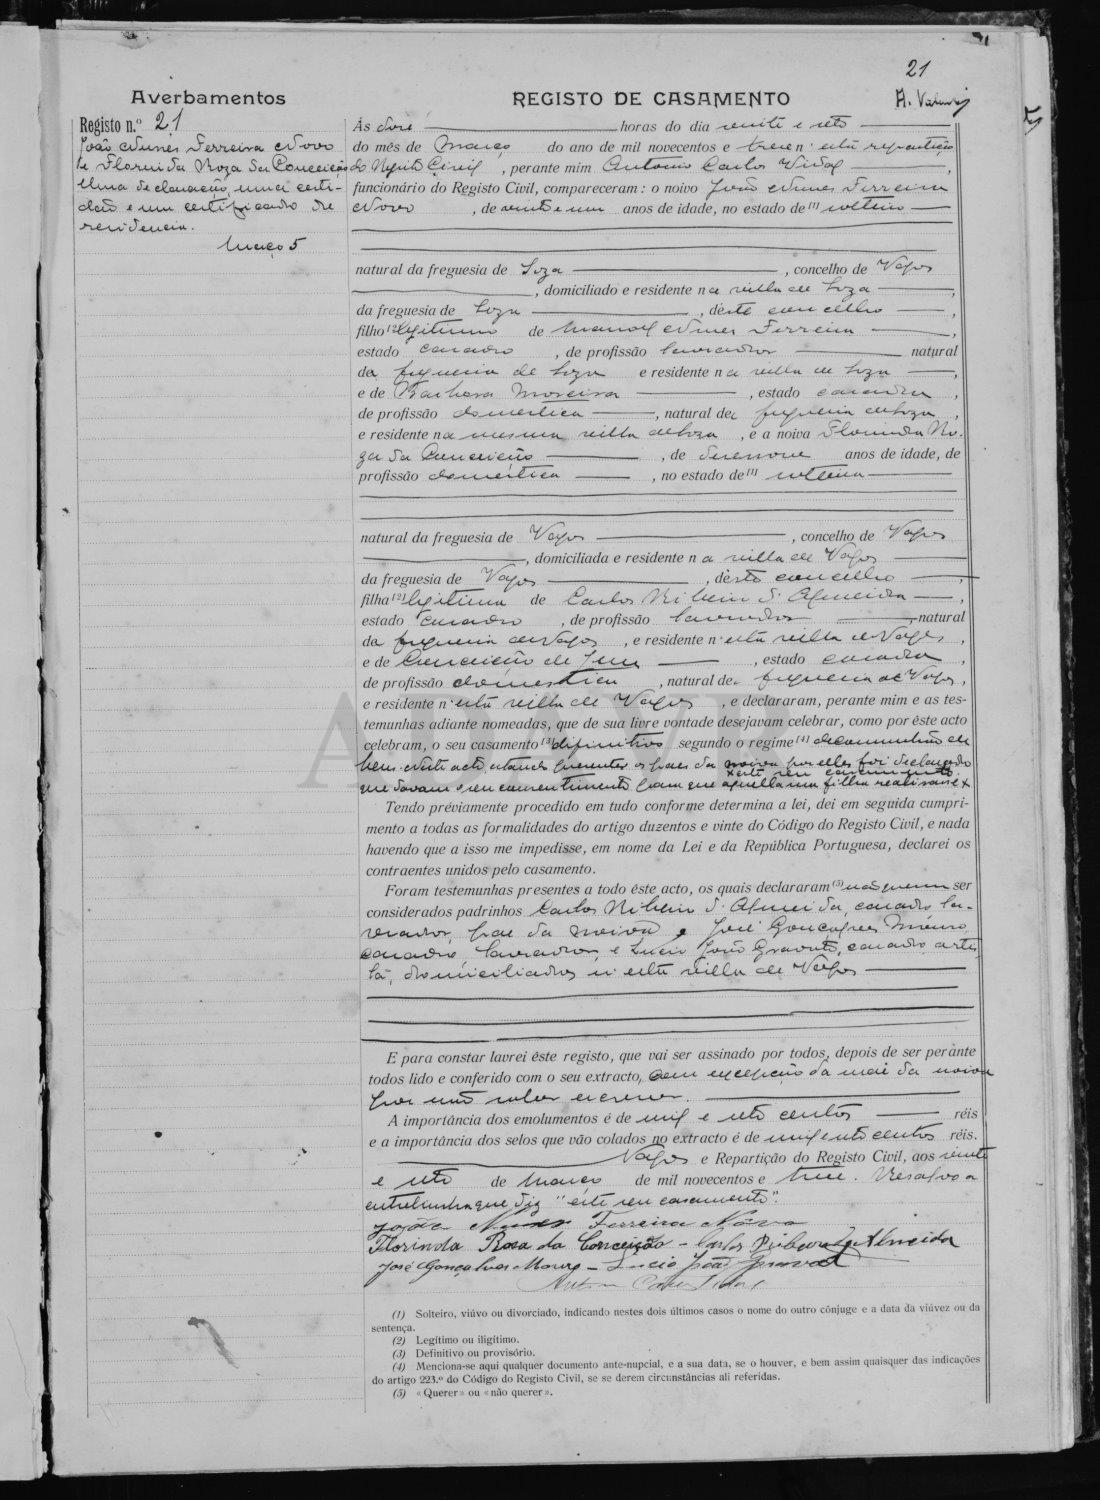 21
A. Valerio
Averbamentos
REGISTO DE CASAMENTO
Registo n.º 21
João Nunes Ferreira Novo
e Florinda Roza da Conceição
Uma declaração, uma certi-
dão e um certificado de
residencia.
Março 5
Às doze horas do dia vinte e oito
do mês de Março do ano de mil novecentos e treze n'esta repartição
do Registo Civil, perante mim Antonio Carlos Vidal,
funcionário do Registo Civil, compareceram: o noivo João Nunes Ferreira
Novo, de vinte e um anos de idade, no estado de (1) solteiro
natural da freguesia de Soza, concelho de Vagos
, domiciliado e residente na villa de Soza,
da freguesia de Soza, dêste concelho,
filho (2) legitimo de Manoel Nunes Ferreira,
estado casado, de profissão lavrador natural
da freguesia de Soza e residente na villa de Soza,
e de Barbara Moreira, estado casada,
de profissão domestica, natural da freguesia de Soza,
e residente na mesma villa de Soza, e a noiva Florinda Ro-
za da Conceição, de desenove anos de idade, de
profissão domestica, no estado de (1) solteira
natural da freguesia de Vagos, concelho de Vagos
, domiciliada e residente na villa de Vagos
da freguesia de Vagos, dêste concelho,
filha (2) legitima de Carlos Ribeiro d'Almeida,
estado casado, de profissão lavrador, natural
da freguesia de Vagos, e residente n'esta villa de Vagos,
e de Conceição de Jesus, estado casada,
de profissão domestica, natural da freguesia de Vagos,
e residente n'esta villa de Vagos, e declararam, perante mim e as tes-
temunhas adiante nomeadas, que de sua livre vontade desejavam celebrar, como por êste acto
celebram, o seu casamento (3) difinitivo segundo o regime (4) de comunhão de
bens. N'este acto estando presentes os paes da noiva por elles foi declarado
x este seu casamento.
que davam o seu consentimento para que aquella sua filha realisasse x
Tendo préviamente procedido em tudo conforme determina a lei, dei em seguida cumpri-
mento a todas as formalidades do artigo duzentos e vinte do Código do Registo Civil, e nada
havendo que a isso me impedisse, em nome da Lei e da República Portuguesa, declarei os
contraentes unidos pelo casamento.
Foram testemunhas presentes a todo êste acto, os quais declararam (5) não querem ser
considerados padrinhos Carlos Ribeiro d'Almeida, casado, la-
vrador, pae da noiva e José Gonçalves
casado, lavrador, e Lucio João Gravato, casado, artis-
ta, domiciliados n'esta villa de Vagos
E para constar lavrei êste registo, que vai ser assinado por todos, depois de ser perante
todos lido e conferido com o seu extracto, com excepção da mãe da noiva
por não saber escrever.
A importância dos emolumentos é de mil e oito centos réis
e a importância dos selos que vão colados no extracto é de mil e oito centos réis.
Vagos e Repartição do Registo Civil, aos vinte
e oito de Março de mil novecentos e treze. Resalvo a
entrelinha que diz "este seu casamento".
João Nunes Ferreira Novo
Florinda Rosa da Conceição - Carlos Ribeiro de Almeida
José Gonçalves - Lucio João Gravato
Antonio Carlos Vidal
(1) Solteiro, viúvo ou divorciado, indicando nestes dois últimos casos o nome do outro cônjuge e a data da viúvez ou da
sentença.
(2) Legítimo ou iligítimo.
(3) Definitivo ou provisório.
(4) Menciona-se aqui qualquer documento ante-nupcial, e a sua data, se o houver, e bem assim quaisquer das indicações
do artigo 223.º do Código do Registo Civil, se se derem circunstâncias ali referidas.
(5) «Querer» ou «não querer».